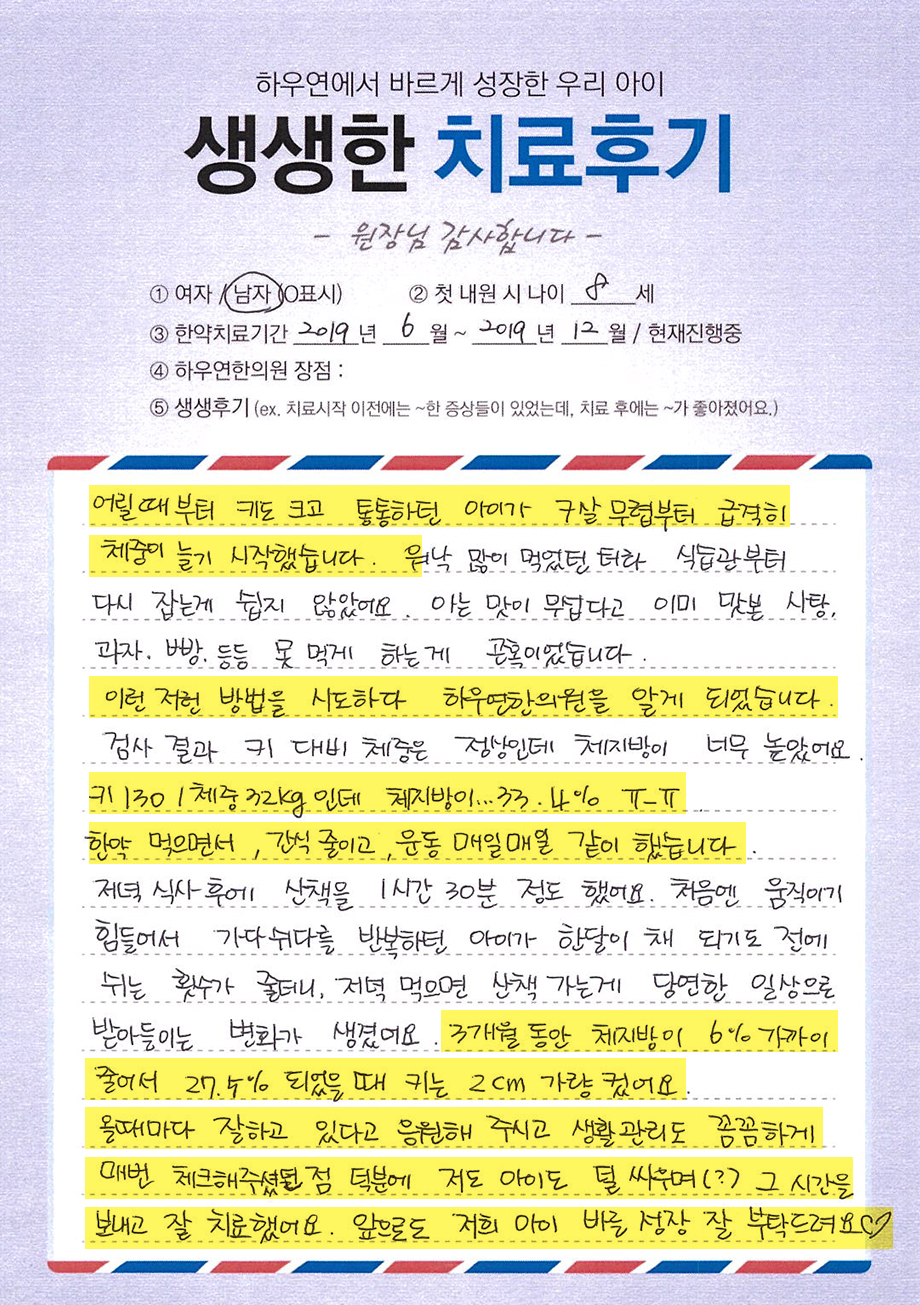 하우연에서 바르게 성장한 우리 아이
생생한 치료후기
- 원장님 감사합니다 -
① 여자 / 남자 (O표시) ② 첫 내원 시 나이 8 세
③ 한약치료기간 2019 년 6 월 ~ 2019 년 12 월 / 현재진행중
④ 하우연한의원 장점 :
⑤ 생생후기 (ex. 치료시작 이전에는 ~한 증상들이 있었는데, 치료 후에는 ~가 좋아졌어요.)
어릴때부터 키도 크고 통통하던 아이가 7살 무렵부터 급격히
체중이 늘기 시작했습니다. 워낙 많이 먹었던 터라 식습관부터
다시 잡는게 쉽지 않았어요. 아는 맛이 무섭다고 이미 맛본 사탕,
과자. 빵. 등등 못 먹게 하는게 곤혹이었습니다.
이런 저런 방법을 시도하다 하우연한의원을 알게 되었습니다.
검사 결과 키 대비 체중은 정상인데 체지방이 너무 높았어요.
키 130 / 체중 32kg 인데 체지방이...33.4% ㅠ-ㅠ
한약 먹으면서, 간식 줄이고, 운동 매일매일 같이 했습니다.
저녁 식사 후에 산책을 1시간 30분 정도 했어요. 처음엔 움직이기
힘들어서 가다쉬다를 반복하던 아이가 한달이 채 되기도 전에
쉬는 횟수가 줄더니, 저녁 먹으면 산책 가는게 당연한 일상으로
받아들이는 변화가 생겼어요. 3개월 동안 체지방이 6% 가까이
줄어서 27.4% 되었을 때 키는 2cm 가량 컸어요.
올때마다 잘하고 있다고 응원해 주시고 생활관리도 꼼꼼하게
매번 체크해주셨던 점 덕분에 저도 아이도 덜 싸우며(?) 그 시간을
보내고 잘 치료했어요. 앞으로도 저희 아이 바른 성장 잘 부탁드려요♡